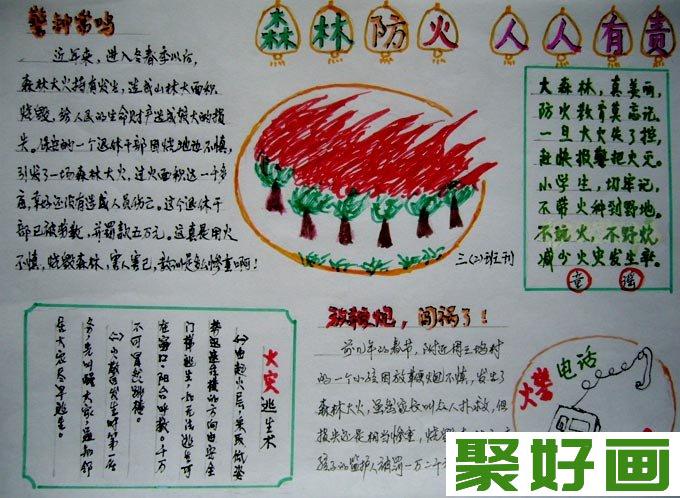 森林防火 人人有责
警钟常鸣
近年来，进入冬春季以后，
森林大火持有发生，造成山林大面积
烧毁，给人民的生命财产造成很大的损
失。保定的一个退休干部因烧地边不慎，
引发了一场森林大火，过火面积达一千多
亩，幸好还没有造成人员伤亡。这个退休干
部已被拘
，并罚款五万元。这真是用火
不慎，烧毁森林，害人害己，教训是
惨重啊！
大森林，真美丽，
防火教育莫忘记。
一旦大火失了控，
赶快报警把火灭。
小学生，切牢记，
不带火种到野地。
不玩火，不野炊，
减少火灾发生率。
童谣
三(2)班刊
火灾逃生术
(一)由起火层，采取低姿
势迅速在楼的方向由安全
门等逃生，如无法逃生可
在窗口、阳台呼救。千万
不可冒然跳楼。
(二)火警发生时第一任
务，先叫醒大家，通知邻
居火灾尽早逃生。
放鞭炮，闯祸了！
前几年的春节，附近
村
的一个小孩因放鞭炮不慎，发生了
森林大火，虽然家长叫众人扑救，但
损失还是相当惨重，烧毁
孩子的监护人被罚一万二千
火警电话
聚好画